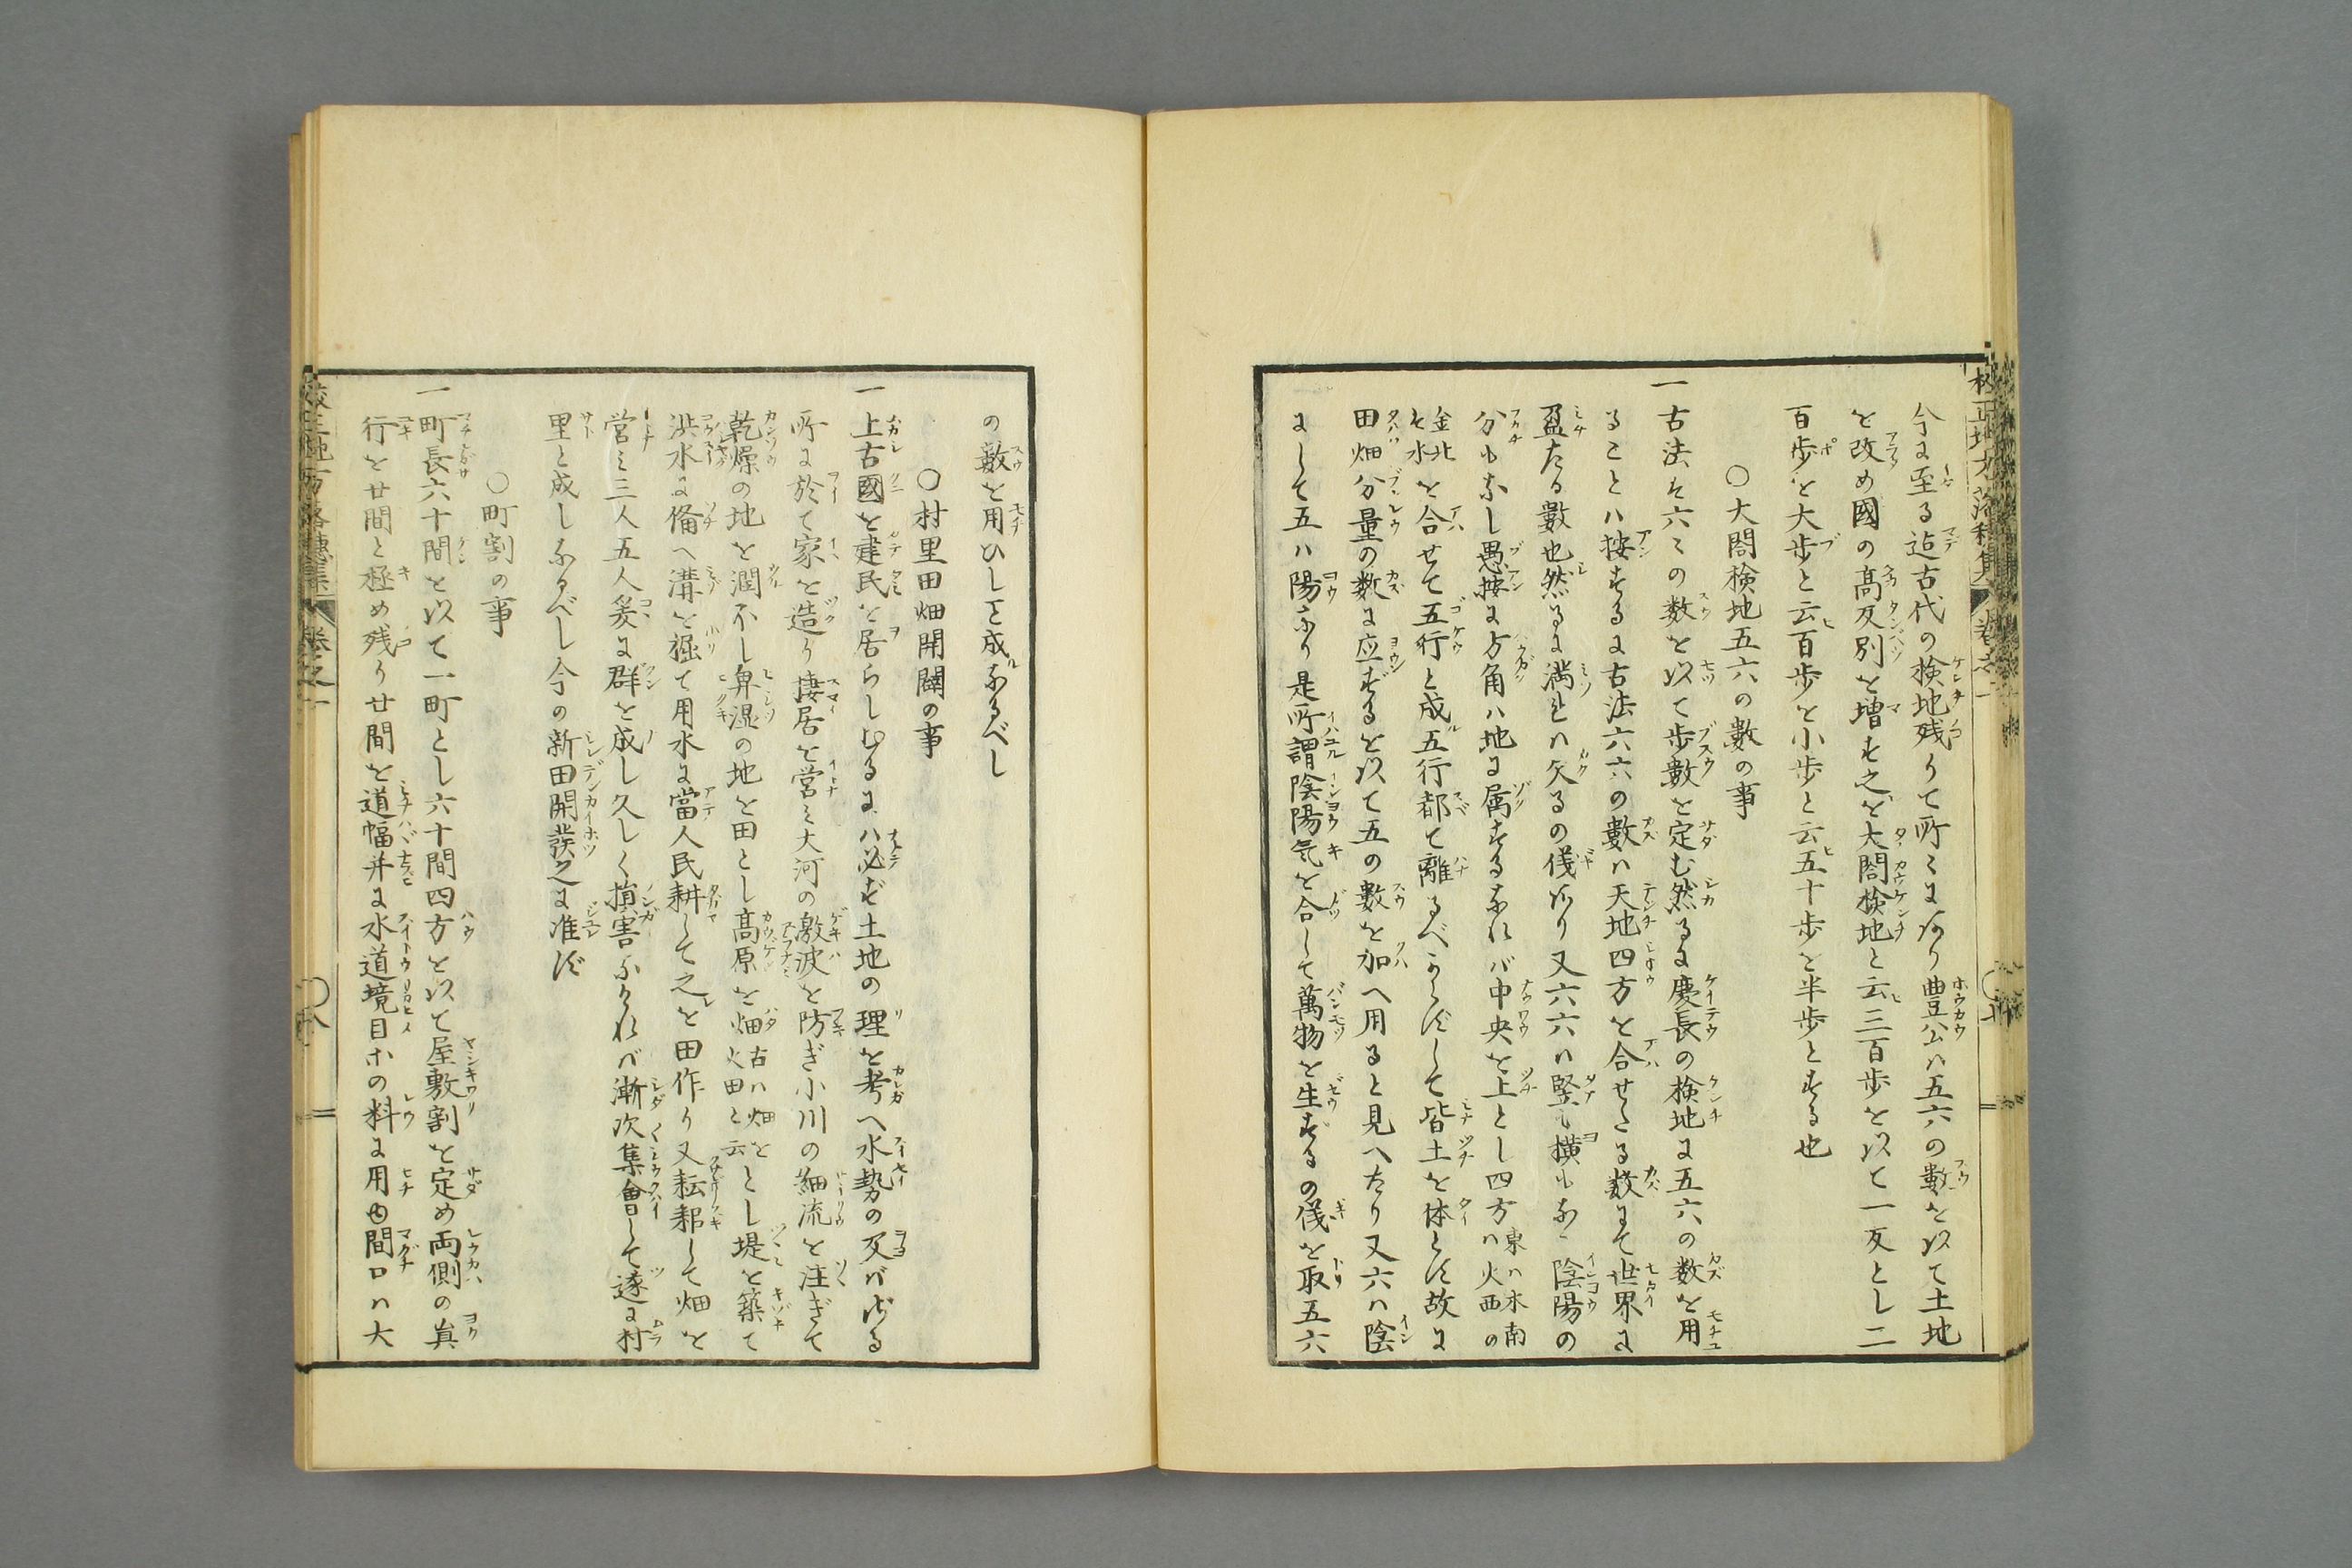 今に至る迠古代の検地残りて所〻に有り豊公ハ五六の數を以て土地
を改め國の髙反別を増す之を大閤検地と云三百歩を以て一反とし二
百歩を大歩と云百歩を小歩と云五十歩を半歩とする也
〇大閤検地五六の數の事
一古法は六〻の数を以て歩數を定む然るに慶長の検地に五六の数を用
ることハ按するに古法六六の數ハ天地四方を合せたる数にて世界に
盈たる數也然るに満れハ欠るの儀有り又六六ハ竪も横もなく陰陽の
分もなし愚按に方角ハ地に属するなれバ中央を土とし四方東ハ木南ハ火西の
金北は水を合せて五行と成五行都て離るべからずして皆土を体とす故に
田畑分量の数に応ずるを以て五の數を加へ用ると見へたり又六ハ陰
にして五ハ陽なり是所謂陰陽気を合して萬物を生ずるの儀を取五六
の數を用ひしと成なるべし
〇村里田畑開闢の事
一上古國を建民を居らしむるにハ必ず土地の理を考へ水勢の及バざる
所に於て家を造り棲居を営ミ大河の激波を防ぎ小川の細流を注ぎて
乾燥の地を潤不し卑湿の地を田とし髙原を畑古ハ畑を火田と云とし堤を築て
洪水に俻へ溝を掘て用水に當人民耕して之を田作り又耘耔して畑を
営ミ三人五人爰に群を成し久しく損害なけれバ漸次集會して遂に村
里と成しなるべし今の新田開發之に准ず
〇町割の事
一町長六十間を以て一町とし六十間四方を以て屋敷割を定め両側の真
行を廿間と極め残り廿間を道幅并に水道境目ホの料に用ゆ間口ハ大
校正地方落穂集
巻之一
〇八